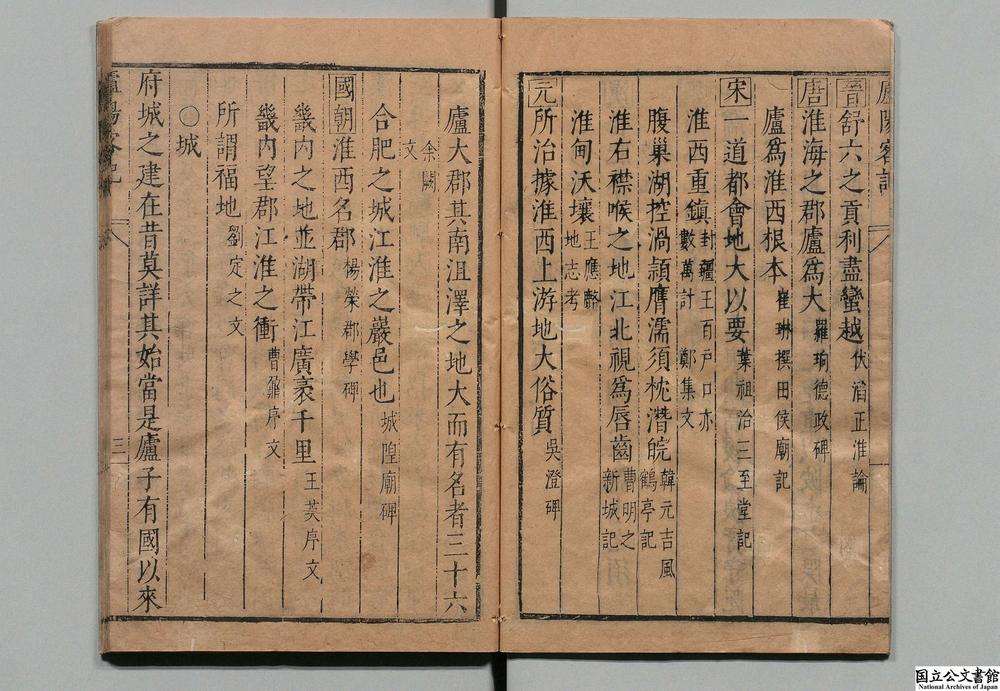 廬陽客記
晉舒六之貢利盡蠻越伏滔正淮論
唐淮海之郡廬爲大羅珦德政碑
廬爲淮西根本崔琳撰田侯廟記
宋一道都會地大以要葉祖洽三至堂記
淮西重鎮封疆王百戸口亦數萬計 鄭集文
腹巢湖控渦潁膺濡須枕潛皖韓元吉風鶴亭記
淮右襟喉之地江北視爲唇齒曹明之新城記
淮甸沃壤王應麟地志考
元所治據淮西上游地大俗質吳澄碑
廬大郡其南沮澤之地大而有名者三十六
余闕文
合肥之城江淮之巖邑也城隍廟碑
國朝淮西名郡楊榮郡學碑
畿内之地並湖帶江廣袤千里王英序文
畿内望郡江淮之衝曹鼐序文
所謂福地劉定之文
○城
府城之建在昔莫詳其始當是廬子有國以來
廬陽客記
三
国立公文書館
National Archives of Japan